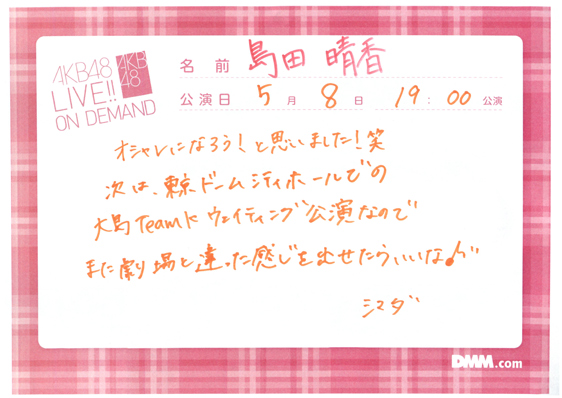 AKB48
LIVE!!
ON DEMAND
AKB
48
名前 島田 晴香
公演日 5月 8日 19:00 公演
オシャレになろう!と思いました!笑
次は、東京ドームシティホールでの
大島TeamK ウェイティング公演なので
また劇場と違った感じを出せたらいいな♪
シマダ
DMM.com